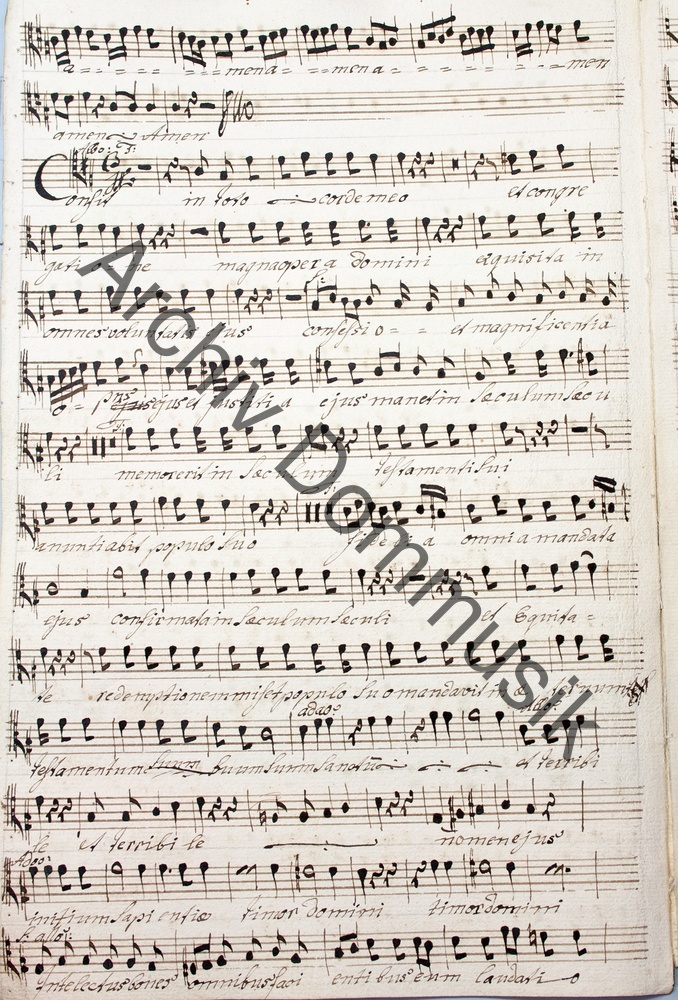 a = = = = = = = = mena = = = mena = = = = = = = men
amen Amen
All:o:
Confit in toto cordemeo et congre
gati o = ne magna opera Domini exquisita in
omnes voluntatis ejus confessi o = = et magnificentia
o = ejus et justiti a ejus manet in sæculum sæcu
li memor erit in sæculum testamenti sui
anuntiabit populo suo fide = i a omni a mandata
ejus confirmata in sæculum sæculi et Equita =
te redemptionem misit populo suo mandavit in æ ternum
adaº: allo:
testamentum suum suum suum sanctū et terribi
le et terribi le nomen ejus
Adoº:
initium sapi entiæ timor domini timor domini
f: allº:
Intelectus bones omnibus faci enti bus eum laudati o
Archiv Dommusik